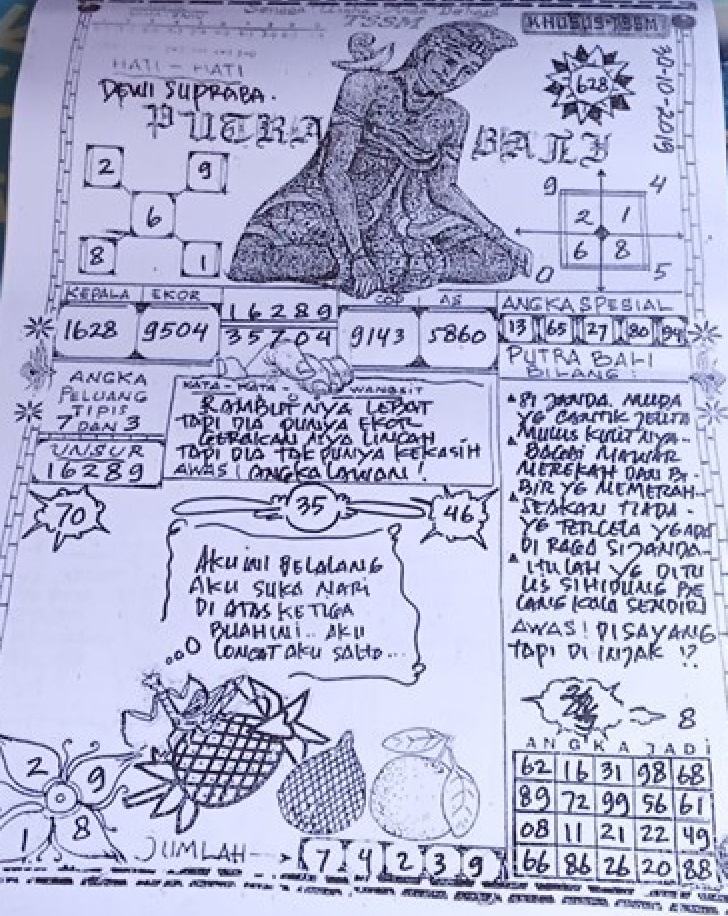 TSSM
KHUSUS-TSSM
30-10-2019
HATI - HATI
DEWI SUPRABA.
PUTRA BALI
628
2 9
6
8 1
9 4
2 1
6 8
0 5
KEPALA EKOR
1628 9504
16289
35704
COP AS
9143 5860
ANGKA SPESIAL
13 65 27 80 94
PUTRA BALI
BILANG :
ANGKA
PELUANG
TIPIS
7 DAN 3
UNSUR
16289
KATA - KATA - WANGSIT
RAMBUTNYA LEBAT
TAPI DIA PUNYA EKOR
GERAKAN NYA LINCAH
TAPI DIA TAK PUNYA KEKASIH
AWAS! ANGKA LAWAN!
SI JANDA MUDA
YG CANTIK JELITA
MULUS KULITNYA-
BAGAI MAWAR
MEREKAH DAN BI-
BIR YG MEMERAH-
SEAKAN TIADA-
YG TERCELA YG ADA
DI RAGA SI JANDA-
ITULAH YG DITU
LIS SIHIDUNG BE
LANG KALA SENDIRI
AWAS! DISAYANG
TAPI DI INJAK !?
70
35
46
AKU INI BELALANG
AKU SUKA NARI
DI ATAS KETIGA
BUAH INI.. AKU
LONCAT AKU SALTO...
8
ANGKA JADI
62 16 31 98 68
89 72 99 56 61
08 11 21 22 49
66 86 26 20 88
2 9
1 8
JUMLAH 7 4 2 3 9